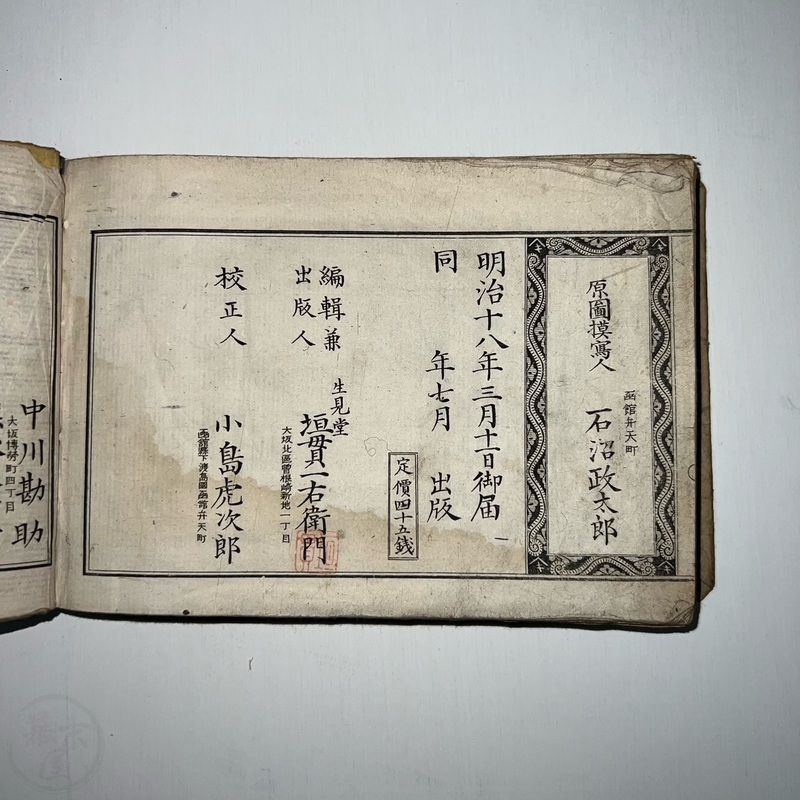 原圖摸寫人
函館弁天町
石沼政太郎
明治十八年三月十一日御届
同 年七月 出版
定價四十五錢
編輯兼
出版人
生見堂
垣貫一右衛門
大坂北區曽根崎新地一丁目
校正人
小島虎次郎
函館縣下渡島國函館弁天町
中川勘助
大坂博労町四丁目